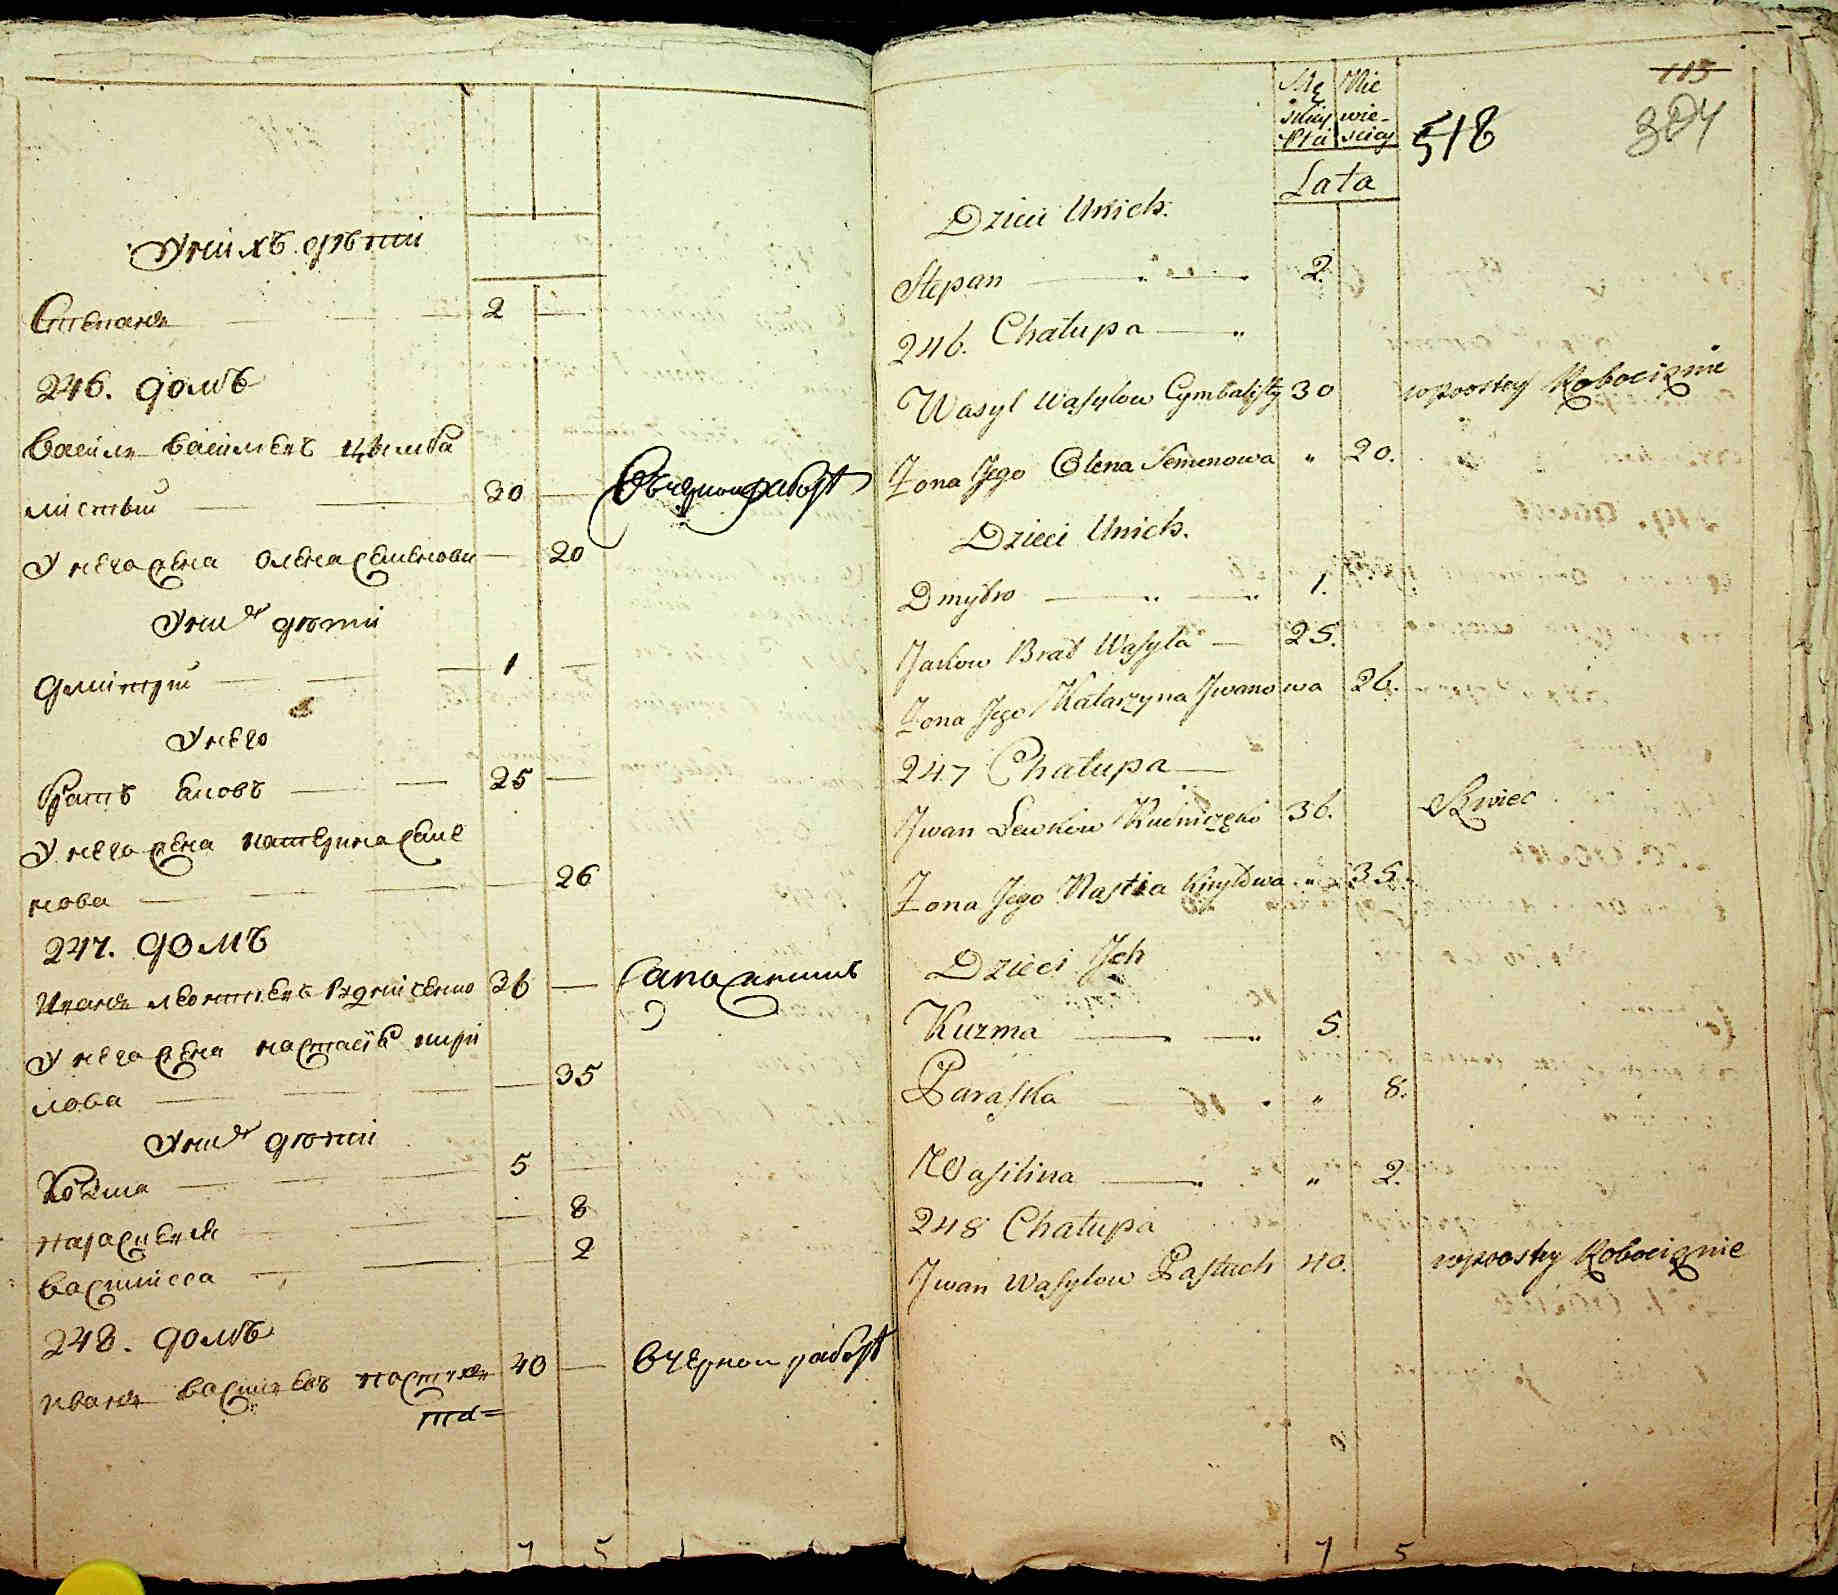 У нихъ дѣти
Степанъ 2
246. домъ
Василь Васильевъ Цымба
листый 30 В черной работѣ
У него жена Олена Семенова 20
У нихъ дѣти
Дмитрий 1
У него
братъ Яковъ 25
У него жена Катерина Семе
нова 26
247. домъ
Иванъ Леонтьевъ 36 Сапожникъ
У него жена Настасія Кири
лова 35
У нихъ дѣти
Козма 5
Параскевія 8
Василисса 2
248. домъ
Иванъ Васильевъ Пастухъ 40 В черной работѣ
7 5
115
Mę Nie
skiej wie-
Płci sciej
518
384
Lata
Dzieci Unich.
Stepan 2.
246. Chałupa
Wasyl Wasylow Cymbalisty 30 wprostey Robociznie
Żona Jego Olena Semenowa " 20.
Dzieci Unich.
Dmytro 1.
Jackow Brat Wasyla 25.
Żona Jego Katarzyna Jwanowa 26.
247 Chałupa
Jwan Lewkow 36. Szwiec
Żona Jego Nastia Kiryłowa " 35.
Dzieci Jch
Kuzma 5
Paraska " 8.
Wasilina " 2.
248 Chałupa
Jwan Wasylow Pastuch 40. wprostey Robociznie
7 5